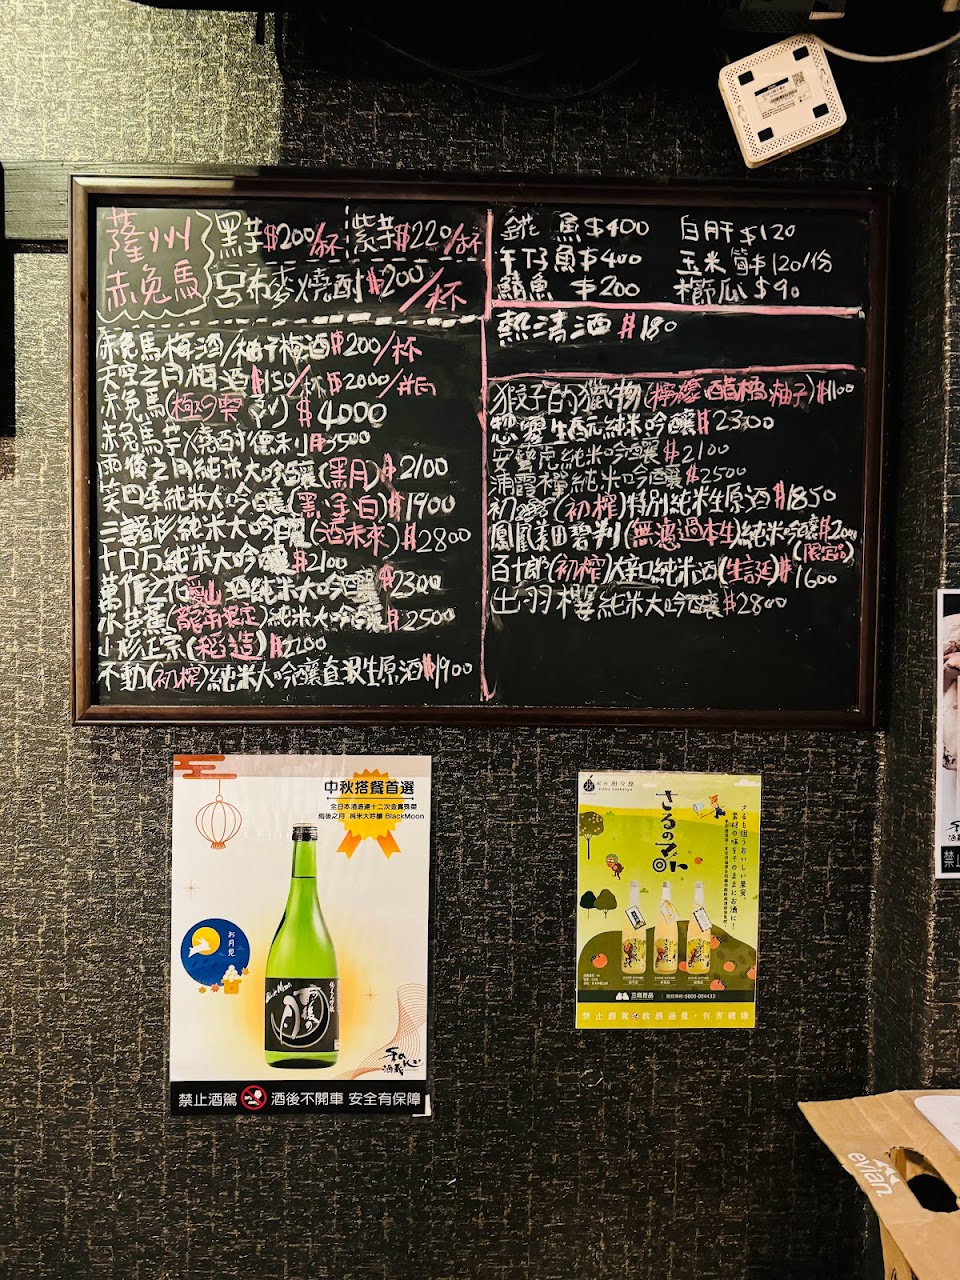 薩州
赤兔馬
黑芋$200/杯 紫芋$220/杯
呂布麥燒酎$200/杯
赤兔馬梅酒/柚子梅酒$200/杯
天空之月梅酒$150/杯$2000/瓶
赤兔馬(極の雫 $4000
赤兔馬芋燒酎德利$3500
雨後之月純米大吟釀(黑月)$2100
笑四季純米大吟釀(黑 白)$1900
三諸杉純米大吟釀(酒未來)$2800
十口万純米大吟釀$2100
萬作之花愛山 酒純米大吟釀$2300
水芭蕉(龍年限定)純米大吟釀$2500
小杉正宗(稻造)$2200
不動(初榨)純米大吟釀直汲生原酒$1900
魚$400 白肝$120
午仔魚$400 玉米筍$120/份
鯖魚 $200 櫛瓜$90
熱清酒$180
猴子的獵物(檸檬 醋橘 柚子)$1100
純米吟釀$2300
安藝虎純米吟釀$2100
浦霞禪純米吟釀$2500
(初榨)特別純米生原酒$1850
鳳凰美田碧判(無濾過本生)純米吟釀$2000
(限定品)
百十郎(初榨)大辛口純米酒(生詰)$1600
出羽櫻純米大吟釀$2800
中秋搭餐首選
全日本酒造連十二次金賞殊榮
雨後之月 純米大吟釀 BlackMoon
お月見
Black Moon
雨後の月
酒藏
禁止酒駕 酒後不開車 安全有保障
さるのマト
さるも狙うおいしい果実、
素材の味をそのままにお酒に!
三商食品
0800-024433
禁止酒駕 飲酒過量,有害健康
禁止
evian